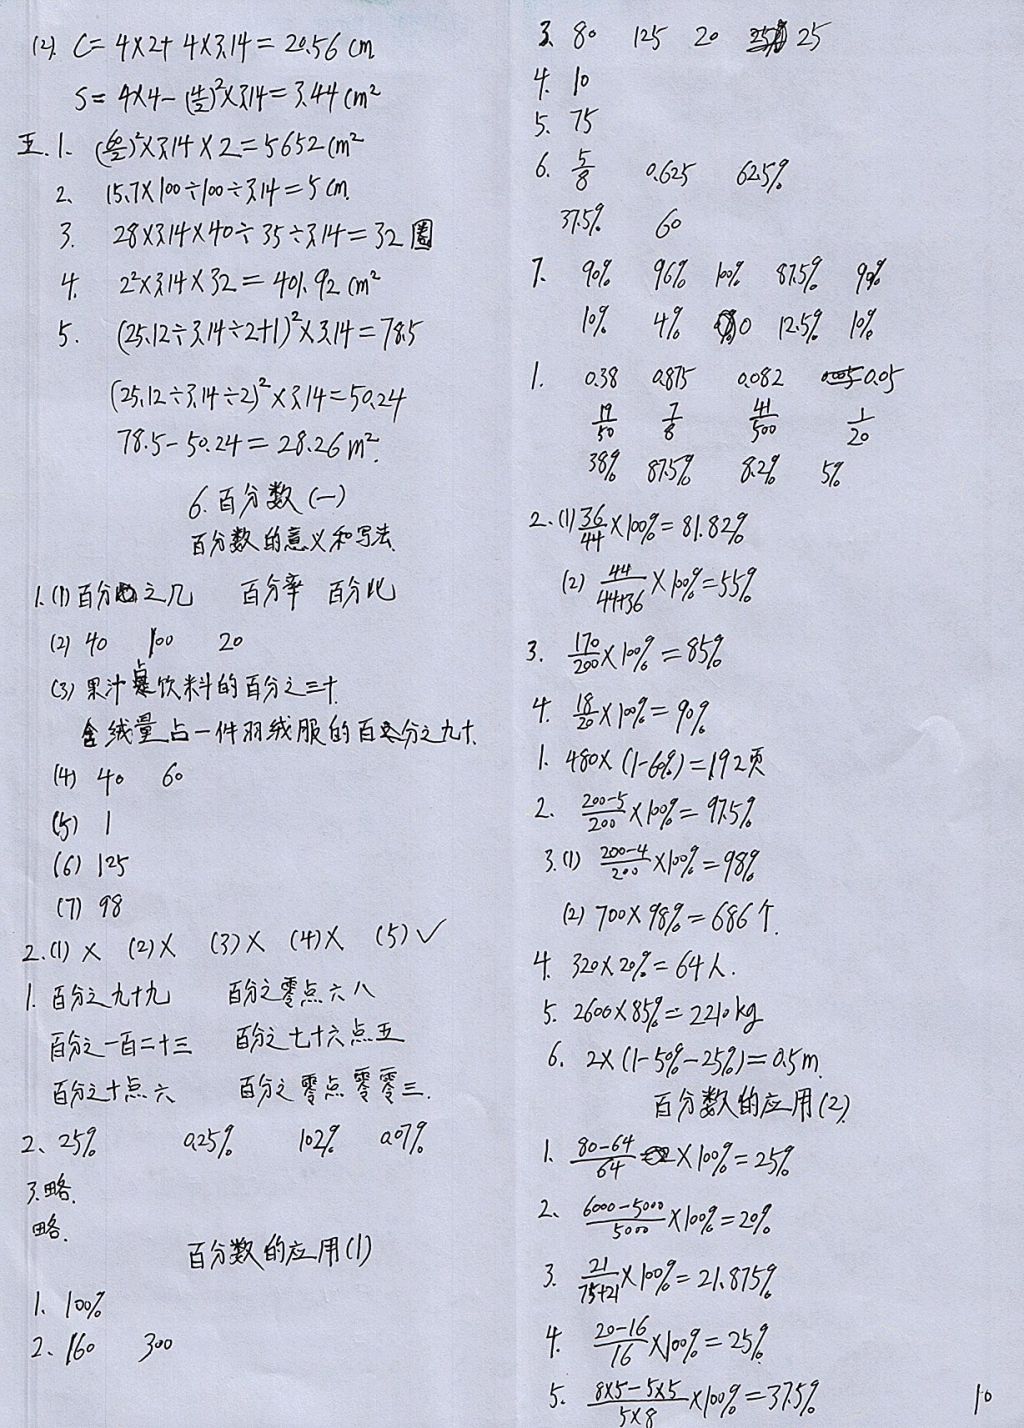 (2) C=4×2+4×3.14=20.56 cm
S=4×4-(4/2)²×3.14=3.44 cm²
五.1. (60/2)²×3.14×2=5652 cm²
2. 15.7×100÷100÷3.14=5 cm.
3. 28×3.14×40÷35÷3.14=32 圈
4. 2²×3.14×32=401.92 cm²
5. (25.12÷3.14÷2+1)²×3.14=78.5
(25.12÷3.14÷2)²×3.14=50.24
78.5-50.24=28.26 m².
6.百分数(一)
百分数的意义和写法.
1.(1)百分之几 百分率 百分比
(2) 40 100 20
(3) 果汁占饮料的百分之三十.
含绒量占一件羽绒服的百分之九十.
(4) 40 60
(5) 1
(6) 125
(7) 98
2.(1)× (2)× (3)× (4)× (5)√
1. 百分之九十九 百分之零点六八
百分之一百二十三 百分之七十六点五
百分之十点六 百分之零点零零三.
2、25% 0.25% 102% 0.07%
3.略.
略.
百分数的应用(1)
1、100%
2、160 300
3. 80 125 20 25
4. 10
5. 75
6. 5/8 0.625 62.5%
37.5% 60
7. 90% 96% 100% 87.5% 90%
10% 4% 0 12.5% 10%
1. 0.38 0.875 0.082 0.05
19/50 7/8 41/500 1/20
38% 87.5% 8.2% 5%
2.(1) 36/44×100%=81.82%
(2) 44/44+36×100%=55%
3. 170/200×100%=85%
4. 18/20×100%=90%
1. 480×(1-60%)=192页
2. 200-5/200×100%=97.5%
3.(1) 200-4/200×100%=98%
(2) 700×98%=686个.
4. 320×20%=64人.
5. 2600×85%=2210kg
6. 2×(1-50%-25%)=0.5m.
百分数的应用(2)
1. 80-64/64×100%=25%
2、6000-5000/5000×100%=20%
3. 21/75+21×100%=21.875%
4. 20-16/16×100%=25%
5. 8×5-5×5/5×8×100%=37.5%
10